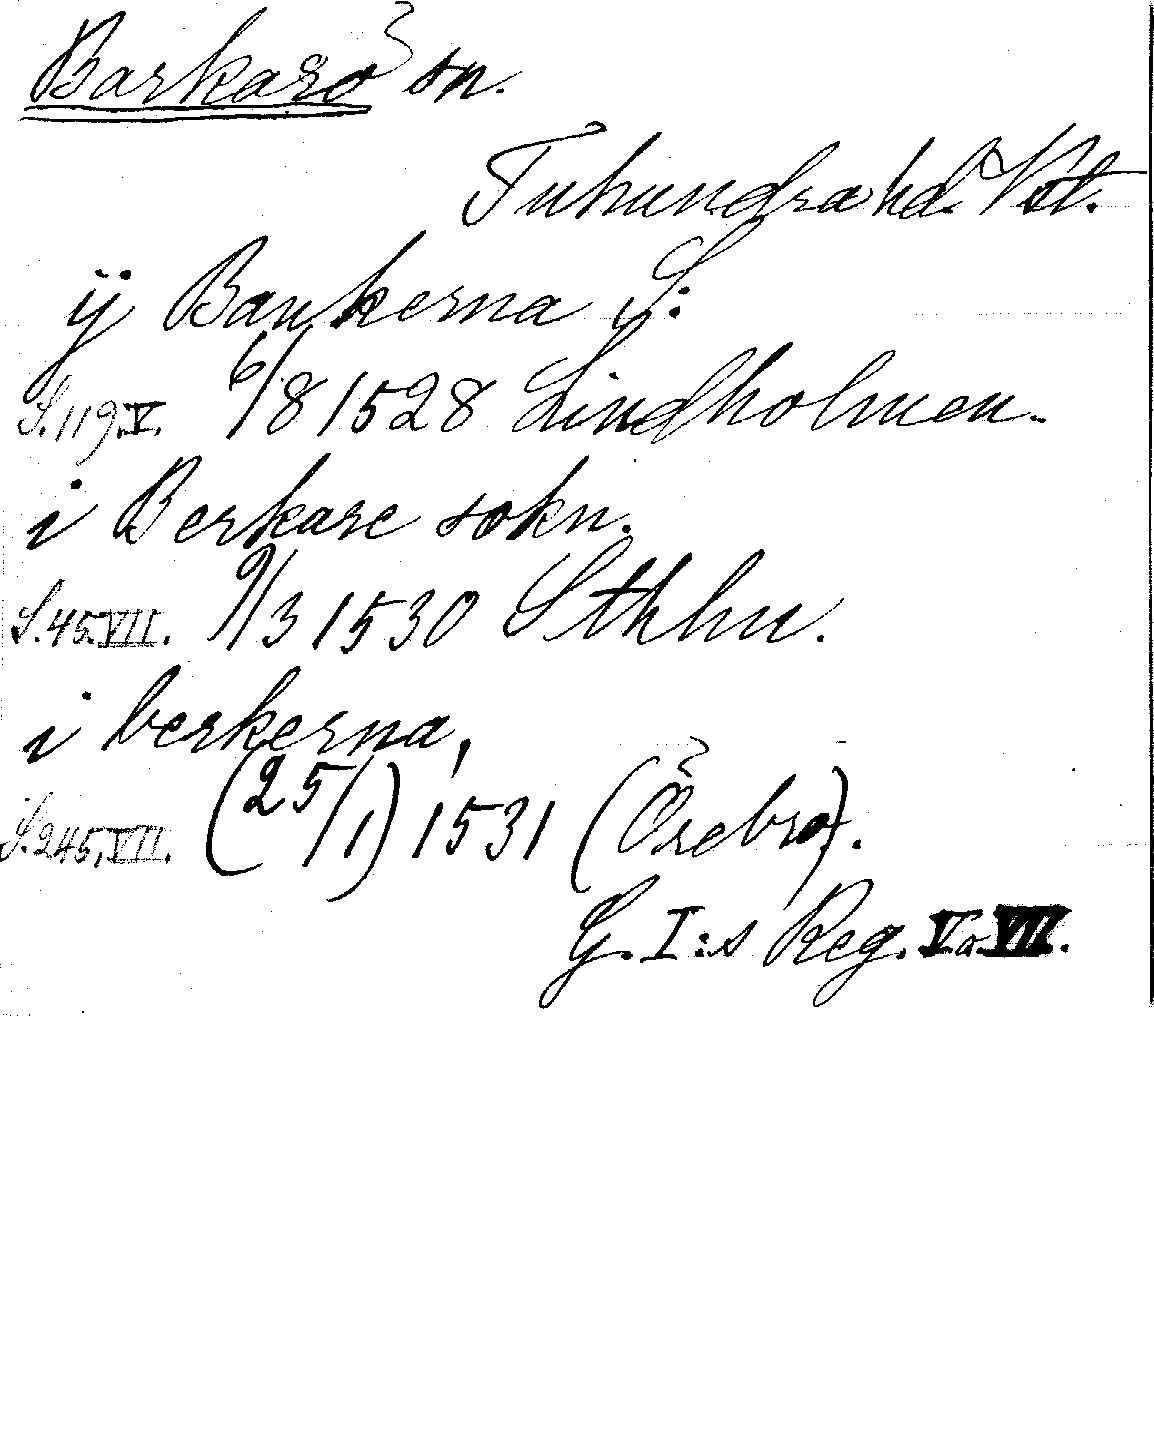 Barkarö sn.
Tuhundra hd. Vstl.
ÿ Bankerna S:
S. 119. V. 6/8 1528 Lindholmen.
i Berkare sokn.
S. 45. VII. 9/3 1530 Sthlm.
i berkerna,
S. 245. VII. (25/1) 1531 (Örebro).
G. I:s Reg. V o. VII.